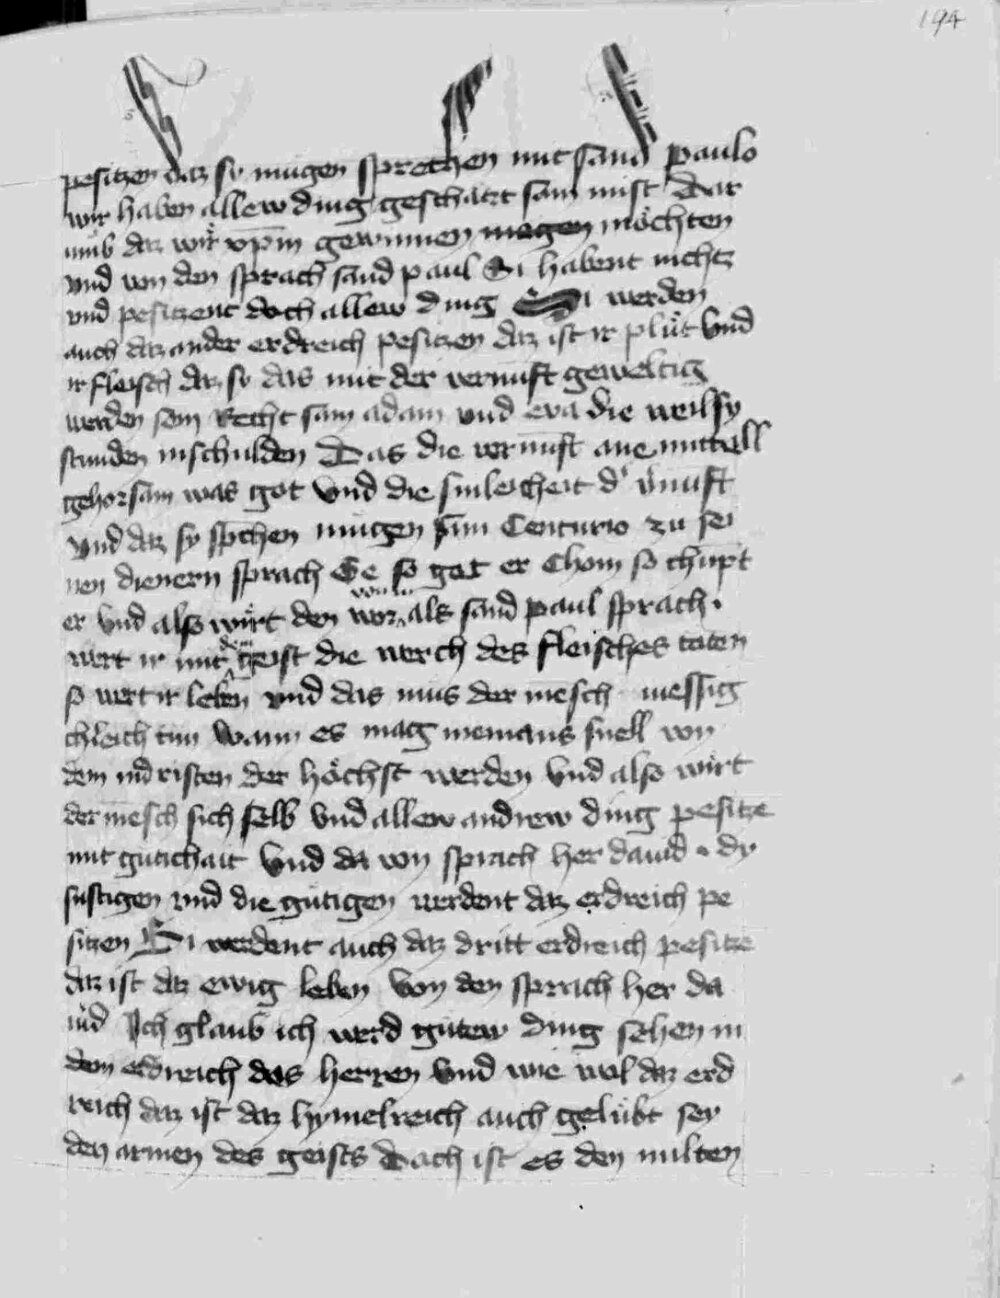 194
pesitzen daz sy mugen sprechen mit sand Paulo
wir haben allew ding geschatzt sam mist Dar
umb daz wir xpm gewinnen mogen möchten
vnd von den sprach sand paul Si habent nichtz
vnd pesitzent doch allew ding Si werden
auch daz ander erdreich pesitzen daz ist ir plüt Vnd
ir fleisch daz sy das mit der vernuft geweltig
werden sein Recht sam adam vnd eva die weil sy
stunden inschulden Das die vernuft ane mittell
gehorsam was got Vnd die sinleicheit d' v̄nuft
Vnd daz sy sp̄chen mugen sam Centurio zu sei
nen dienern sprach Ge so get er Chom so chupt
er Vnd also wirt den von in als sand paul sprach
wert ir mit dem geist die werch des fleisches toten
so wert ir leben vnd das mus der mēsch messig
chleich tun Wann es mag niemans snell von
dem nidristen der höchst werden Vnd also wirt
der mēsch sich selb Vnd allew andrew ding pesitze
mit gutichait Vnd da von sprach her dauid dy
senftigen vnd die gütigen werdent daz erdreich pe
sitzen Si werdent auch daz dritt erdreich pesitze
daz ist daz ewig leben Von den sprach her da
uid Ich glaub ich werd gutew ding sehen in
dem erdreich des herren Vnd wie wol daz erd
reich daz ist daz hymelreich auch gelübt sey
den armen des geists doch ist es den milten